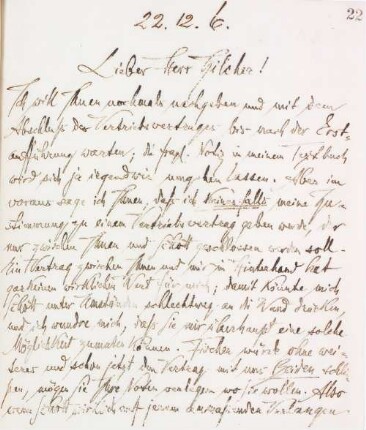 22
22.12.6.
Lieber Herr Hilcher!
Ich will Ihnen nochmals nachgeben und mit dem
Abschluß des Vertriebsvertrages bis nach der Erst-
aufführung warten; die fragl. Notiz in meinem Textbuch
wird sich ja irgendwie umgehen lassen. Aber im
voraus sage ich Ihnen, daß ich keinesfalls meine Zu-
stimmung zu einem Vertriebsvertrag geben werde, der
nur zwischen Ihnen und geschlossen werden soll.
Ein Vertrag zwischen Ihnen und mir zu Hinterhand hat
wirklichen Wert für mich; damit könnte mich
unter Umständen schlechtweg an die Wand drücken,
und ich wundre mich, daß Sie mir überhaupt eine solche
Möglichkeit zumuten können. würde ohne wei-
teres und schon jetzt den Vertrag mit uns Beiden schlie-
ßen, mögen Ihre Noten verlegen wo sie wollen. Also
wenn Verlangen